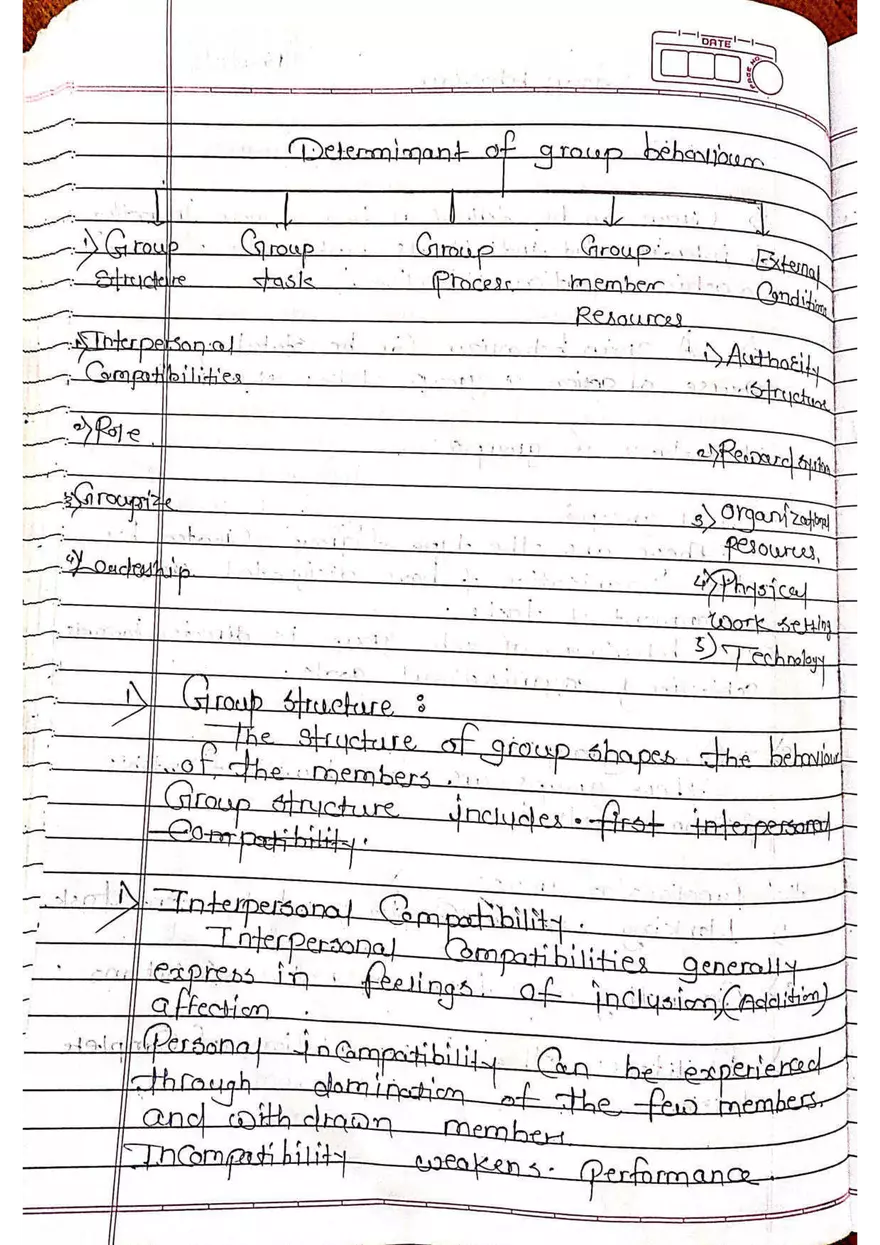 DATE
PAGE NO
Determinant of group behaviour
1) Group Group Group Group External
Structure task Process member Condition
Resources
1) Interpersonal
Compatibilities
2) Role
3) Groupsize
4) Leadership
1) Authority
structure
2) Reward system
3) Organizational
Resources,
4) Physical
Work setting
5) Technology
1) Group structure :
The structure of group shapes the behaviour
of the members.
Group structure includes. first interpersonal
Compatibility.
1) Interpersonal Compatibility.
Interpersonal Compatibilities generally
express in feelings of inclusion, (Addition)
affection
Personal inCompatibility Can be experienced
through domination of the few members.
and with drawn member
InCompatibility weakens. Performance.